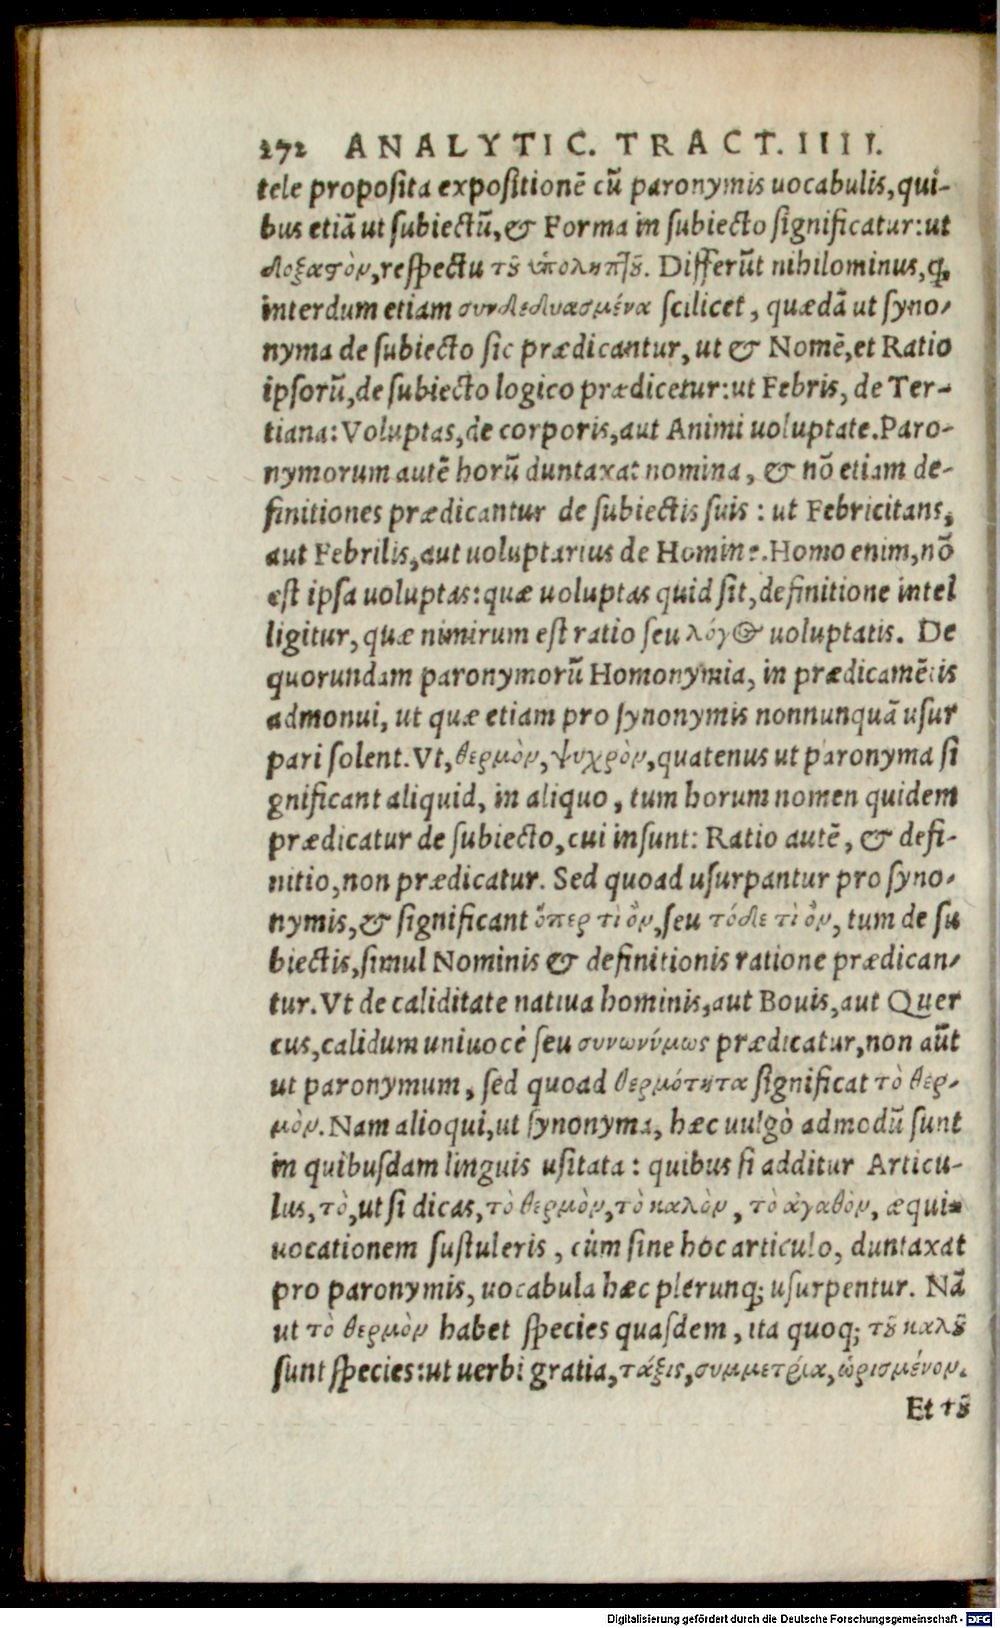 272 ANALYTIC. TRACT. IIII.
tele proposita expositionē cū paronymis uocabulis, qui-
bus etiā ut subiectū, & Forma in subiecto significatur: ut
δοξαστὸν, respectu τȣ͂ ὑποληπτȣ͂. Differūt nihilominus, ꝙ,
interdum etiam συνδεδυασμένα scilicet, quædā ut syno-
nyma de subiecto sic prædicantur, ut & Nomē, et Ratio
ipsorū, de subiecto logico prædicetur: ut Febris, de Ter-
tiana: Voluptas, de corporis, aut Animi uoluptate. Paro-
nymorum autē horū duntaxat nomina, & nō etiam de-
finitiones prædicantur de subiectis suis: ut Febricitans,
aut Febrilis, aut uoluptarius de Homine. Homo enim, nō
est ipsa uoluptas: quæ uoluptas quid sit, definitione intel
ligitur, quæ nimirum est ratio seu λόγος uoluptatis. De
quorundam paronymorū Homonymia, in prædicamētis
admonui, ut quæ etiam pro synonymis nonnunquā usur
pari solent. Vt, θερμὸν, ψυχρὸν, quatenus ut paronyma si
gnificant aliquid, in aliquo, tum horum nomen quidem
prædicatur de subiecto, cui insunt: Ratio autē, & defi-
nitio, non prædicatur. Sed quoad usurpantur pro syno-
nymis, & significant ὅπερ τὶ ὂν, seu τόδε τὶ ὂν, tum de su
biectis, simul Nominis & definitionis ratione prædican-
tur. Vt de caliditate natiua hominis, aut Bouis, aut Quer
cus, calidum uniuocè seu συνωνύμως prædicatur, non aūt
ut paronymum, sed quoad θερμότητα significat τὸ θερ-
μὸν. Nam alioqui, ut synonyma, hæc uulgò admodū sunt
in quibusdam linguis usitata: quibus si additur Articu-
lus, τὸ, ut si dicas, τὸ θερμὸν, τὸ καλὸν, τὸ ἀγαθὸν, æqui-
uocationem sustuleris, cùm sine hoc articulo, duntaxat
pro paronymis, uocabula hæc plerunq; usurpentur. Nā
ut τὸ θερμὸν habet species quasdem, ita quoq; τȣ͂ καλȣ͂
sunt species: ut uerbi gratia, τάξις, συμμετρία, ὡρισμένον.
Et τȣ͂
Digitalisierung gefördert durch die Deutsche Forschungsgemeinschaft - DFG